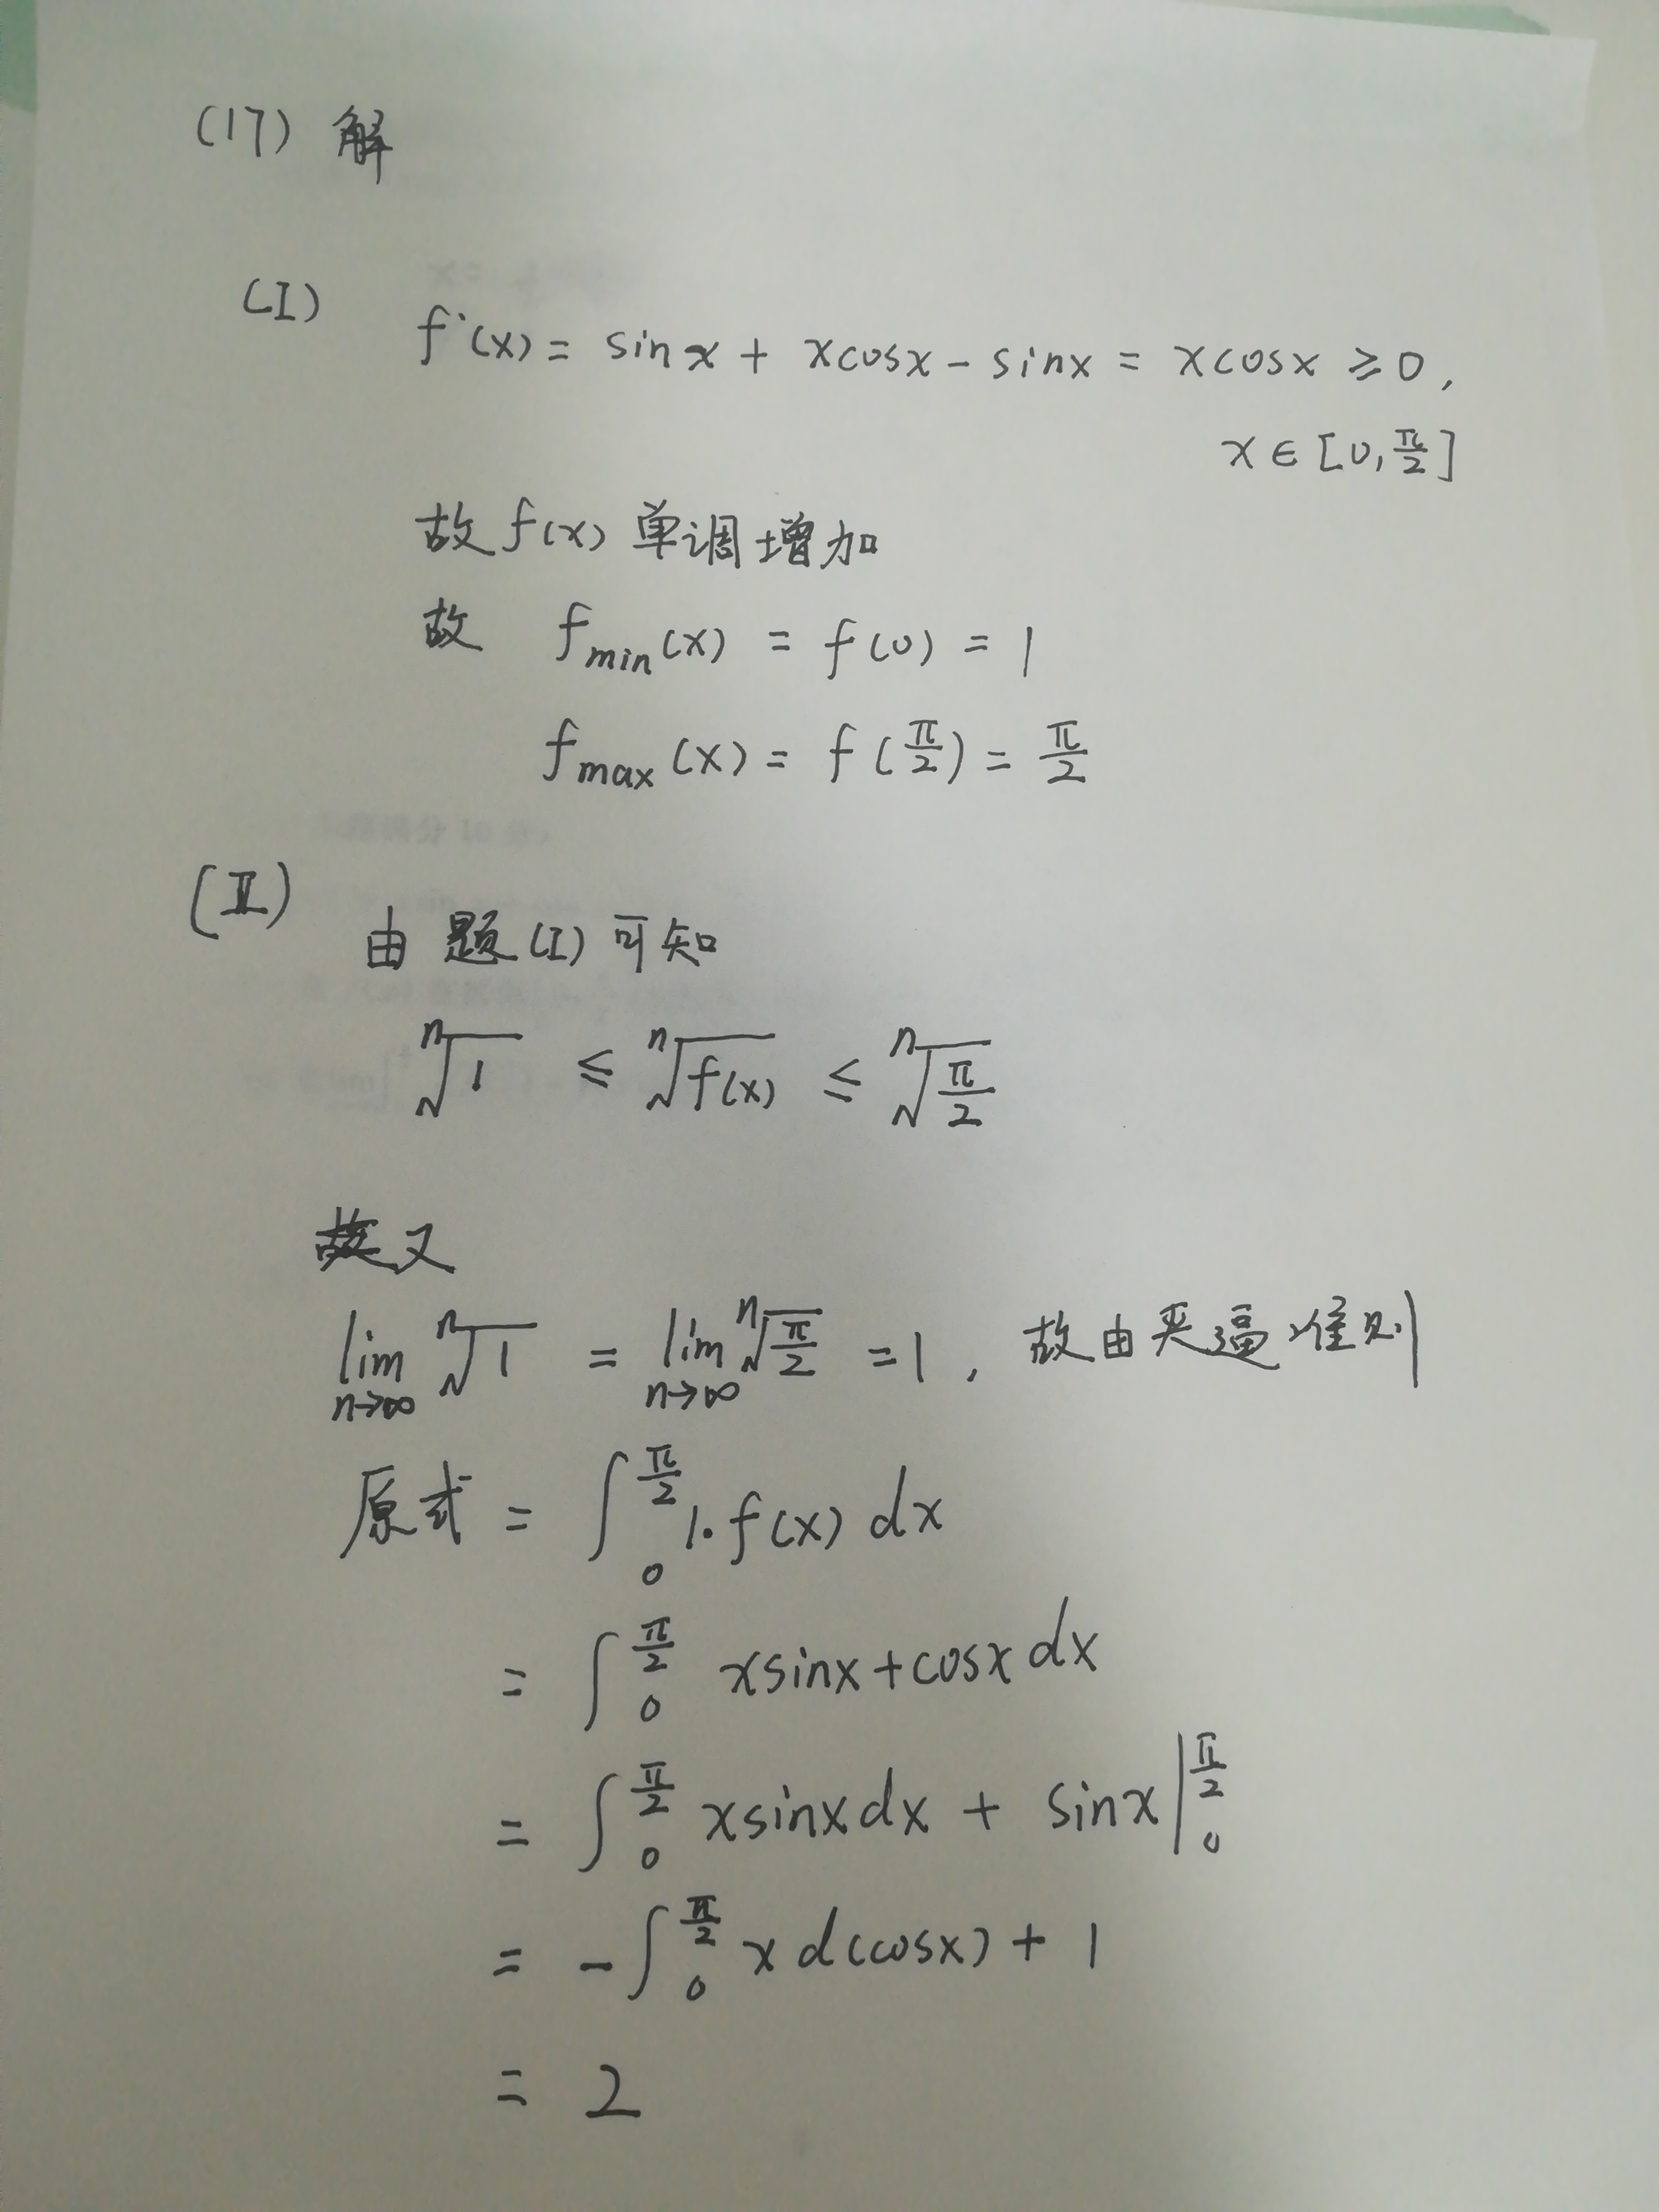 (17) 解
(I)
f'(x) = sinx + xcosx - sinx = xcosx ≥ 0,
x ∈ [0, π/2]
故 f(x) 单调增加
故 f_min(x) = f(0) = 1
f_max(x) = f(π/2) = π/2
(II)
由题(I)可知
ⁿ√1 ≤ ⁿ√f(x) ≤ ⁿ√(π/2)
又
lim_{n→∞} ⁿ√1 = lim_{n→∞} ⁿ√(π/2) = 1, 故由夹逼准则
原式 = ∫_0^{π/2} 1·f(x) dx
= ∫_0^{π/2} xsinx + cosx dx
= ∫_0^{π/2} xsinx dx + sinx |_0^{π/2}
= -∫_0^{π/2} x d(cosx) + 1
= 2